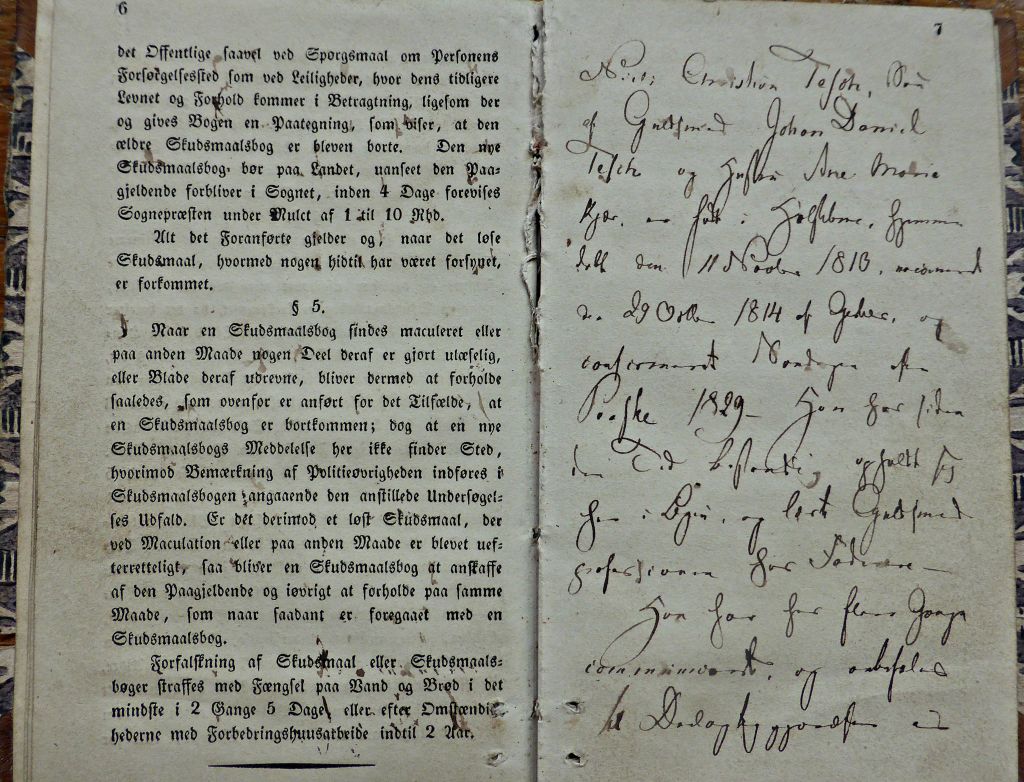 6
det Offentlige saavel ved Spørgsmaal om Personens
Forsørgelsessted som ved Leiligheder, hvor dens tidligere
Levnet og Forhold kommer i Betragtning, ligesom der
og gives Bogen en Paategning, som viser, at den
ældre Skudsmaalsbog er bleven borte. Den nye
Skudsmaalsbog bør paa Landet, uanseet den Paa-
gjeldende forbliver i Sognet, inden 4 Dage forevises
Sognepræsten under Mulct af 1 til 10 Rbd.
Alt det Foranførte gjelder og, naar det løse
Skudsmaal, hvormed nogen hidtil har været forsynet,
er forkommet.
§ 5.
Naar en Skudsmaalsbog findes maculeret eller
paa anden Maade nogen Deel deraf er gjort ulæselig,
eller Blade deraf udrevne, bliver dermed at forholde
saaledes, som ovenfor er anført for det Tilfælde, at
en Skudsmaalsbog er bortkommen; dog at en nye
Skudsmaalsbogs Meddelelse her ikke finder Sted,
hvorimod Bemærkning af Politieøvrigheden indføres i
Skudsmaalsbogen angaaende den anstillede Undersøgel-
ses Udfald. Er det derimod et løst Skudsmaal, der
ved Maculation eller paa anden Maade er blevet uef-
terretteligt, saa bliver en Skudsmaalsbog at anskaffe
af den Paagjeldende og iøvrigt at forholde paa samme
Maade, som naar saadant er foregaaet med en
Skudsmaalsbog.
Forfalskning af Skudsmaal eller Skudsmaals-
bøger straffes med Fængsel paa Vand og Brød i det
mindste i 2 Gange 5 Dage eller efter Omstændig-
hederne med Forbedringshuusarbeide indtil 2 Aar.
7
Christian Tesch, Søn
af Guldsmed Johan Daniel
Tesch og Hustru Ane Marie
Kjær, er født i Holstebro, hjemme
døbt den 11 Novbr 1813, vaccineret
d. 29 Octbr 1814 af og
confirmeret Søndagen efter
Paaske 1829 – Han har siden
den Tid bestandig opholdt sig
her i Byen, og lært Guldsmed
professionen hos Faderen –
Han har her flere Gange
communiceret, og anbefales
til